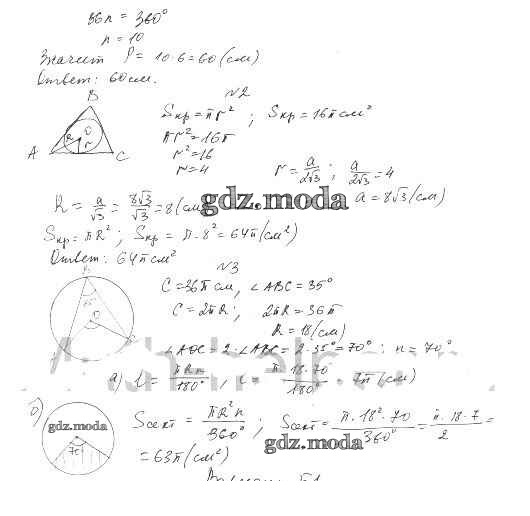 36n = 360°
n = 10
Значит P = 10·6 = 60 (см)
Ответ: 60 см.
№2
B
O
R
r
A
C
Sкр = πr²; Sкр = 16π см²
πr² = 16π
r² = 16
r = 4
r = a/2√3; a/2√3 = 4
a = 8√3 (см)
R = a/√3 = 8√3/√3 = 8 (см
gdz.moda
Sкр = πR²; Sкр = π·8² = 64π (см²)
Ответ: 64π см²
№3
B
O
C
C = 36π см, ∠ABC = 35°
C = 2πR; 2πR = 36π
R = 18 (см)
∠AOC = 2·∠ABC = 2·35° = 70°: n = 70°
а) l = πRn/180°, l = π·18·70/180° = 7π (см)
б)
gdz.moda
70
Sсект = πR²n/360°; Sсект = π·18²·70/360° = π·18·7/2 =
gdz.moda
= 63π (см²)